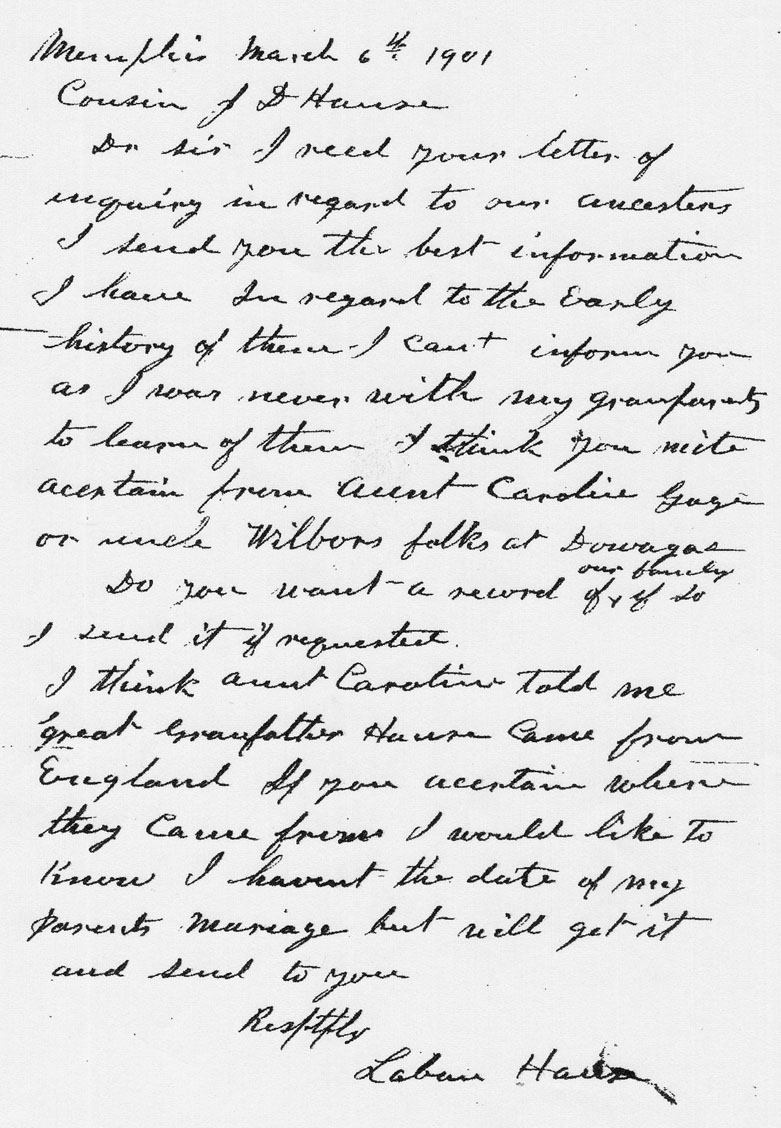 Memphis March 6th 1901
Cousin J D Hause
Dr sir I recd your letter of
inquiry in regard to our ancesters
I send you the best information
I have In regard to the Early
history of them I can't inform you
as I was never with my granparents
to learn of them I think you mite
acertain from Aunt Caroline Gage
or uncle Wilbors folks at Dowagac
our family
Do you want a record of, if so
I send it if requested.
I think aunt Caroline told me
great Granfather Hause Came from
England If you acertain where
they Came from I would like to
Know I havent the date of my
parents Mariage but will get it
and send to you
Respttfly
Laban Hause